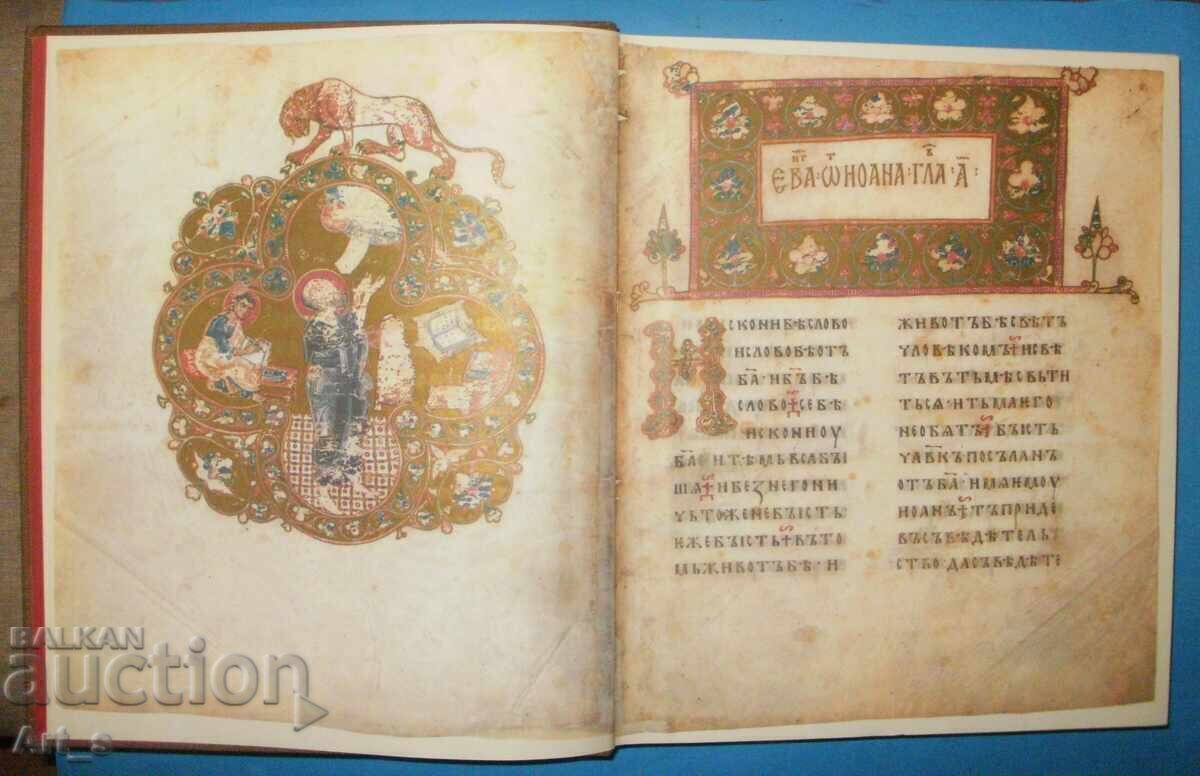 ЕВА·ѾИОАНА·ГЛА·А҃:
ИСКОНИБѢСЛОВО
ИСЛОВОБѢОТЪ
БА҃·ИБЪ҃БѢ
СЛОВО·СЕБѢ
ИСКОНИОУ
БА҃·ИТѢМЬВСАБЫ
ШѦ·ИБЕЗНЕГОНИ
ЧЬТОЖЕНЕБЫСТЬ
ИЖЕБЫСТЬ·ВЪТО
МЬЖИВОТЪБѢ·И
ЖИВОТЪБѢСВѢТЪ
ЧЛОВѢКОМЪ·ИСВѢ
ТЪВЪТЬМѢСВЬТИ
ТЬСѦ·ИТЬМАИГО
НЕОБѦТЪ·БЫСТЬ
ЧЛ҃ВКЪПОСЪЛАНЪ
ОТЪБА҃·ИМѦИМОУ
ИОАНЪ·ТЪПРИДЕ
ВЪСЪВѢДѢТЕЛЬ
СТВОДАСЪВѢДѢТЕ
BALKAN
auction
Art_s